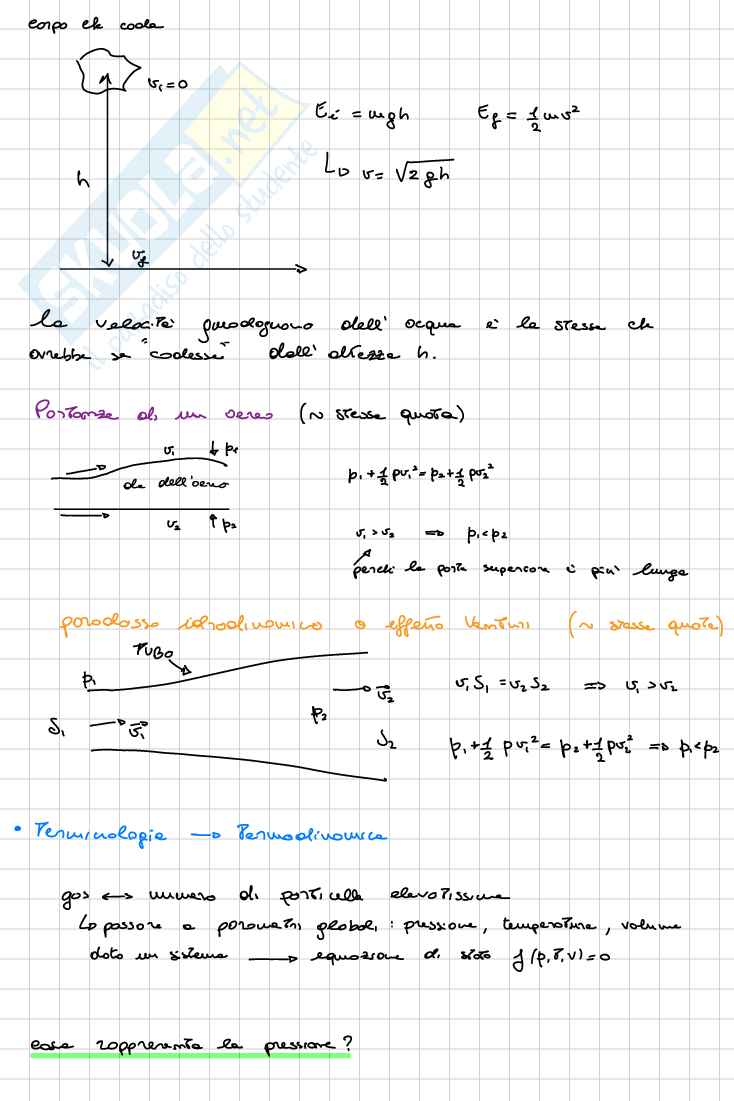 corpo che cade
v₁ = 0
Eᵢ = mgh
E_f = 1/2 mv²
h
↳ v = √2gh
v_f
SKUOLA.net
il paradiso dello studente
la velocità guadagnano dell' acqua è la stessa che
avrebbe se "cadesse" dall' altezza h.
Portanza di un aereo (~ stessa quota)
v₁ ↓ p₁
ala dell'aereo
v₂ ↑ p₂
p₁ + 1/2 ρv₁² = p₂ + 1/2 ρv₂²
v₁ > v₂ ⇒ p₁ < p₂
perché la parte superiore è più lunga
paradosso idrodinamico o effetto Venturi (~ stessa quota)
TUBO
p₁
v₂
p₂
S₁
v₁
S₂
v₁S₁ = v₂S₂ ⇒ v₁ > v₂
p₁ + 1/2 ρv₁² = p₂ + 1/2 ρv₂² ⇒ p₁ < p₂
• Terminologia → Termodinamica
gas ↔ numero di particelle elevatissime
↳ passare a parametri globali : pressione, temperatura, volume
dato un sistema → equazione di stato f(p,T,V) = 0
cosa rappresenta la pressione?